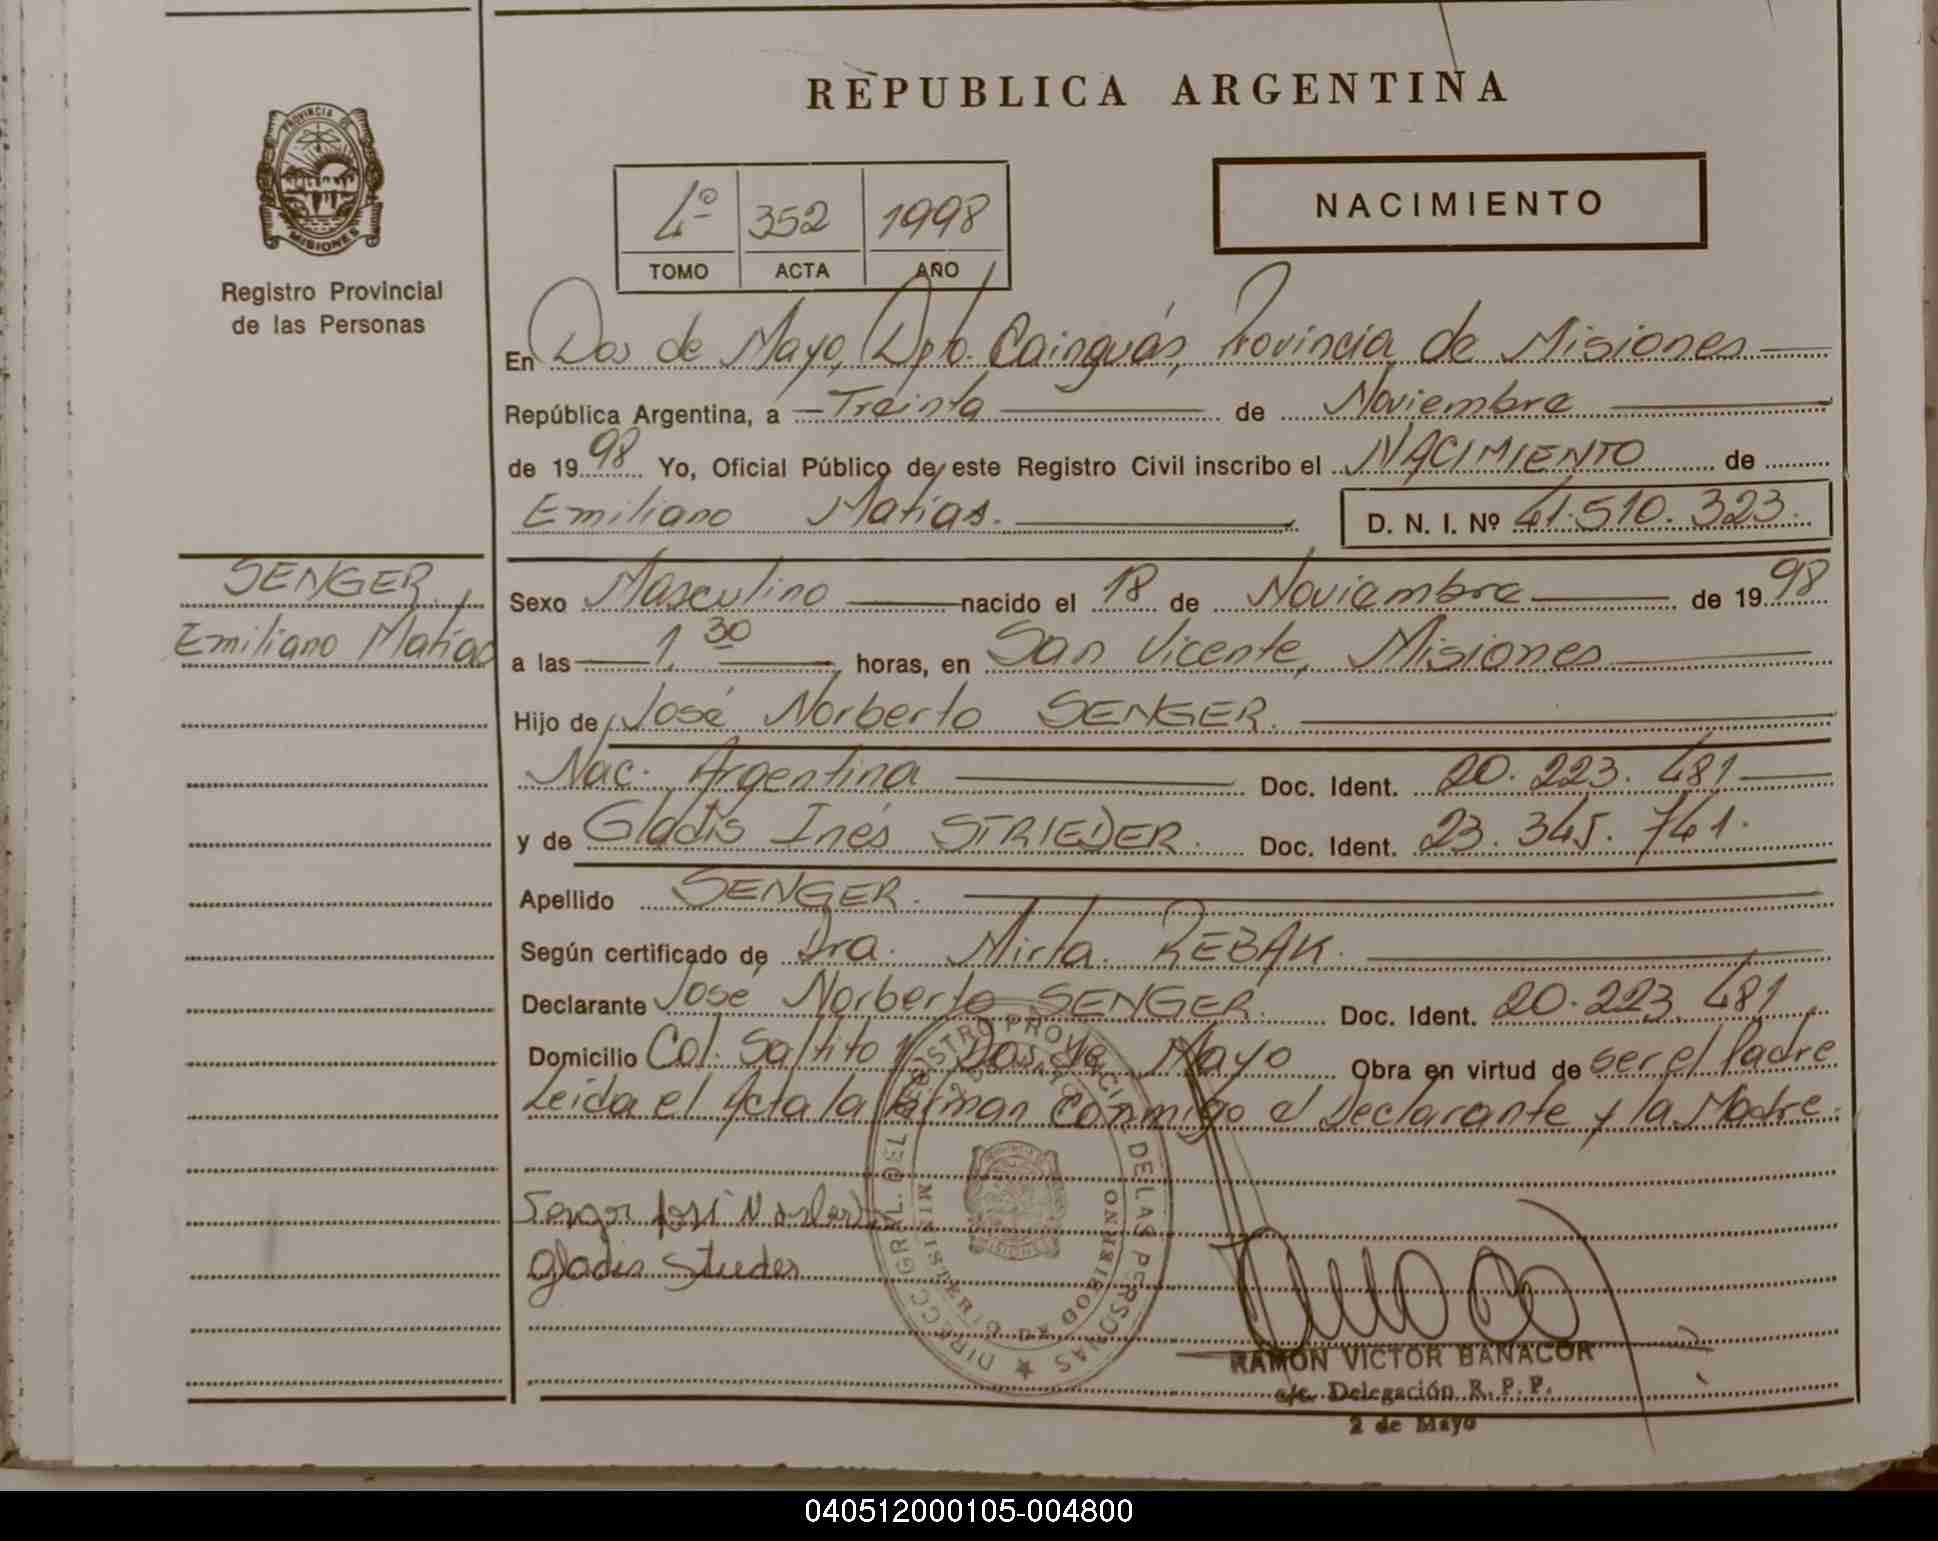 REPUBLICA ARGENTINA
PROVINCIA DE
MISIONES
Registro Provincial
de las Personas
4º 352 1998
TOMO ACTA AÑO
NACIMIENTO
En Dos de Mayo, Dpto. Cainguás, Provincia de Misiones
República Argentina, a Treinta de Noviembre
de 1998 Yo, Oficial Público de este Registro Civil inscribo el NACIMIENTO de
Emiliano Matías. D. N. I. Nº 41.510.323.
SENGER
Emiliano Matías
Sexo Masculino nacido el 18 de Noviembre de 1998
a las 1,30 horas, en San Vicente, Misiones
Hijo de José Norberto SENGER.
Nac. Argentina Doc. Ident. 20.223.481
y de Gladis Inés STRIEDER. Doc. Ident. 23.345.741.
Apellido SENGER.
Según certificado de Dra. Mirta REBAK.
Declarante José Norberto SENGER. Doc. Ident. 20.223.481
Domicilio Col. Saltito Dos de Mayo Obra en virtud de ser el Padre
Leida el Acta la firman conmigo el Declarante y la Madre.
Senger José
Gladis Strieder
DIRECC. GRAL. DEL REGISTRO PROVINCIAL DE LAS PERSONAS
MINISTERIO DE GOBIERNO
RAMON VICTOR BANACOR
a/c. Delegación R. P. P.
2 de Mayo
040512000105-004800